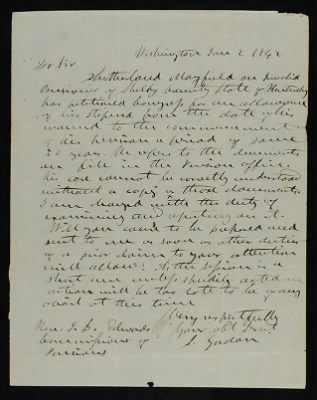 Washington June 2 1842
Dr Sir
Sutherland Mayfield an Invalid
Pensioner of Shelby County State of Kentucky
has petitioned Congress for an allowance
of his stipend from the date of his
wound to the commencement
of his pension a period of some
20 years. He refers to the documents
on file in the Pension office.
His case cannot be correctly understood
without a copy of those documents.
I am charged with the duty of
examining and reporting on it.
Will you cause to be prepared and
sent to me as soon as other duties
of a prior claim to your attention
will allow? As the session is a
short one unless speedily acted on
action will be too late to be of any
avail at this time
Very respectfully
Your obt Servt
S. Gordon
Hon. J. L. Edwards
Commissioner of
Pensions